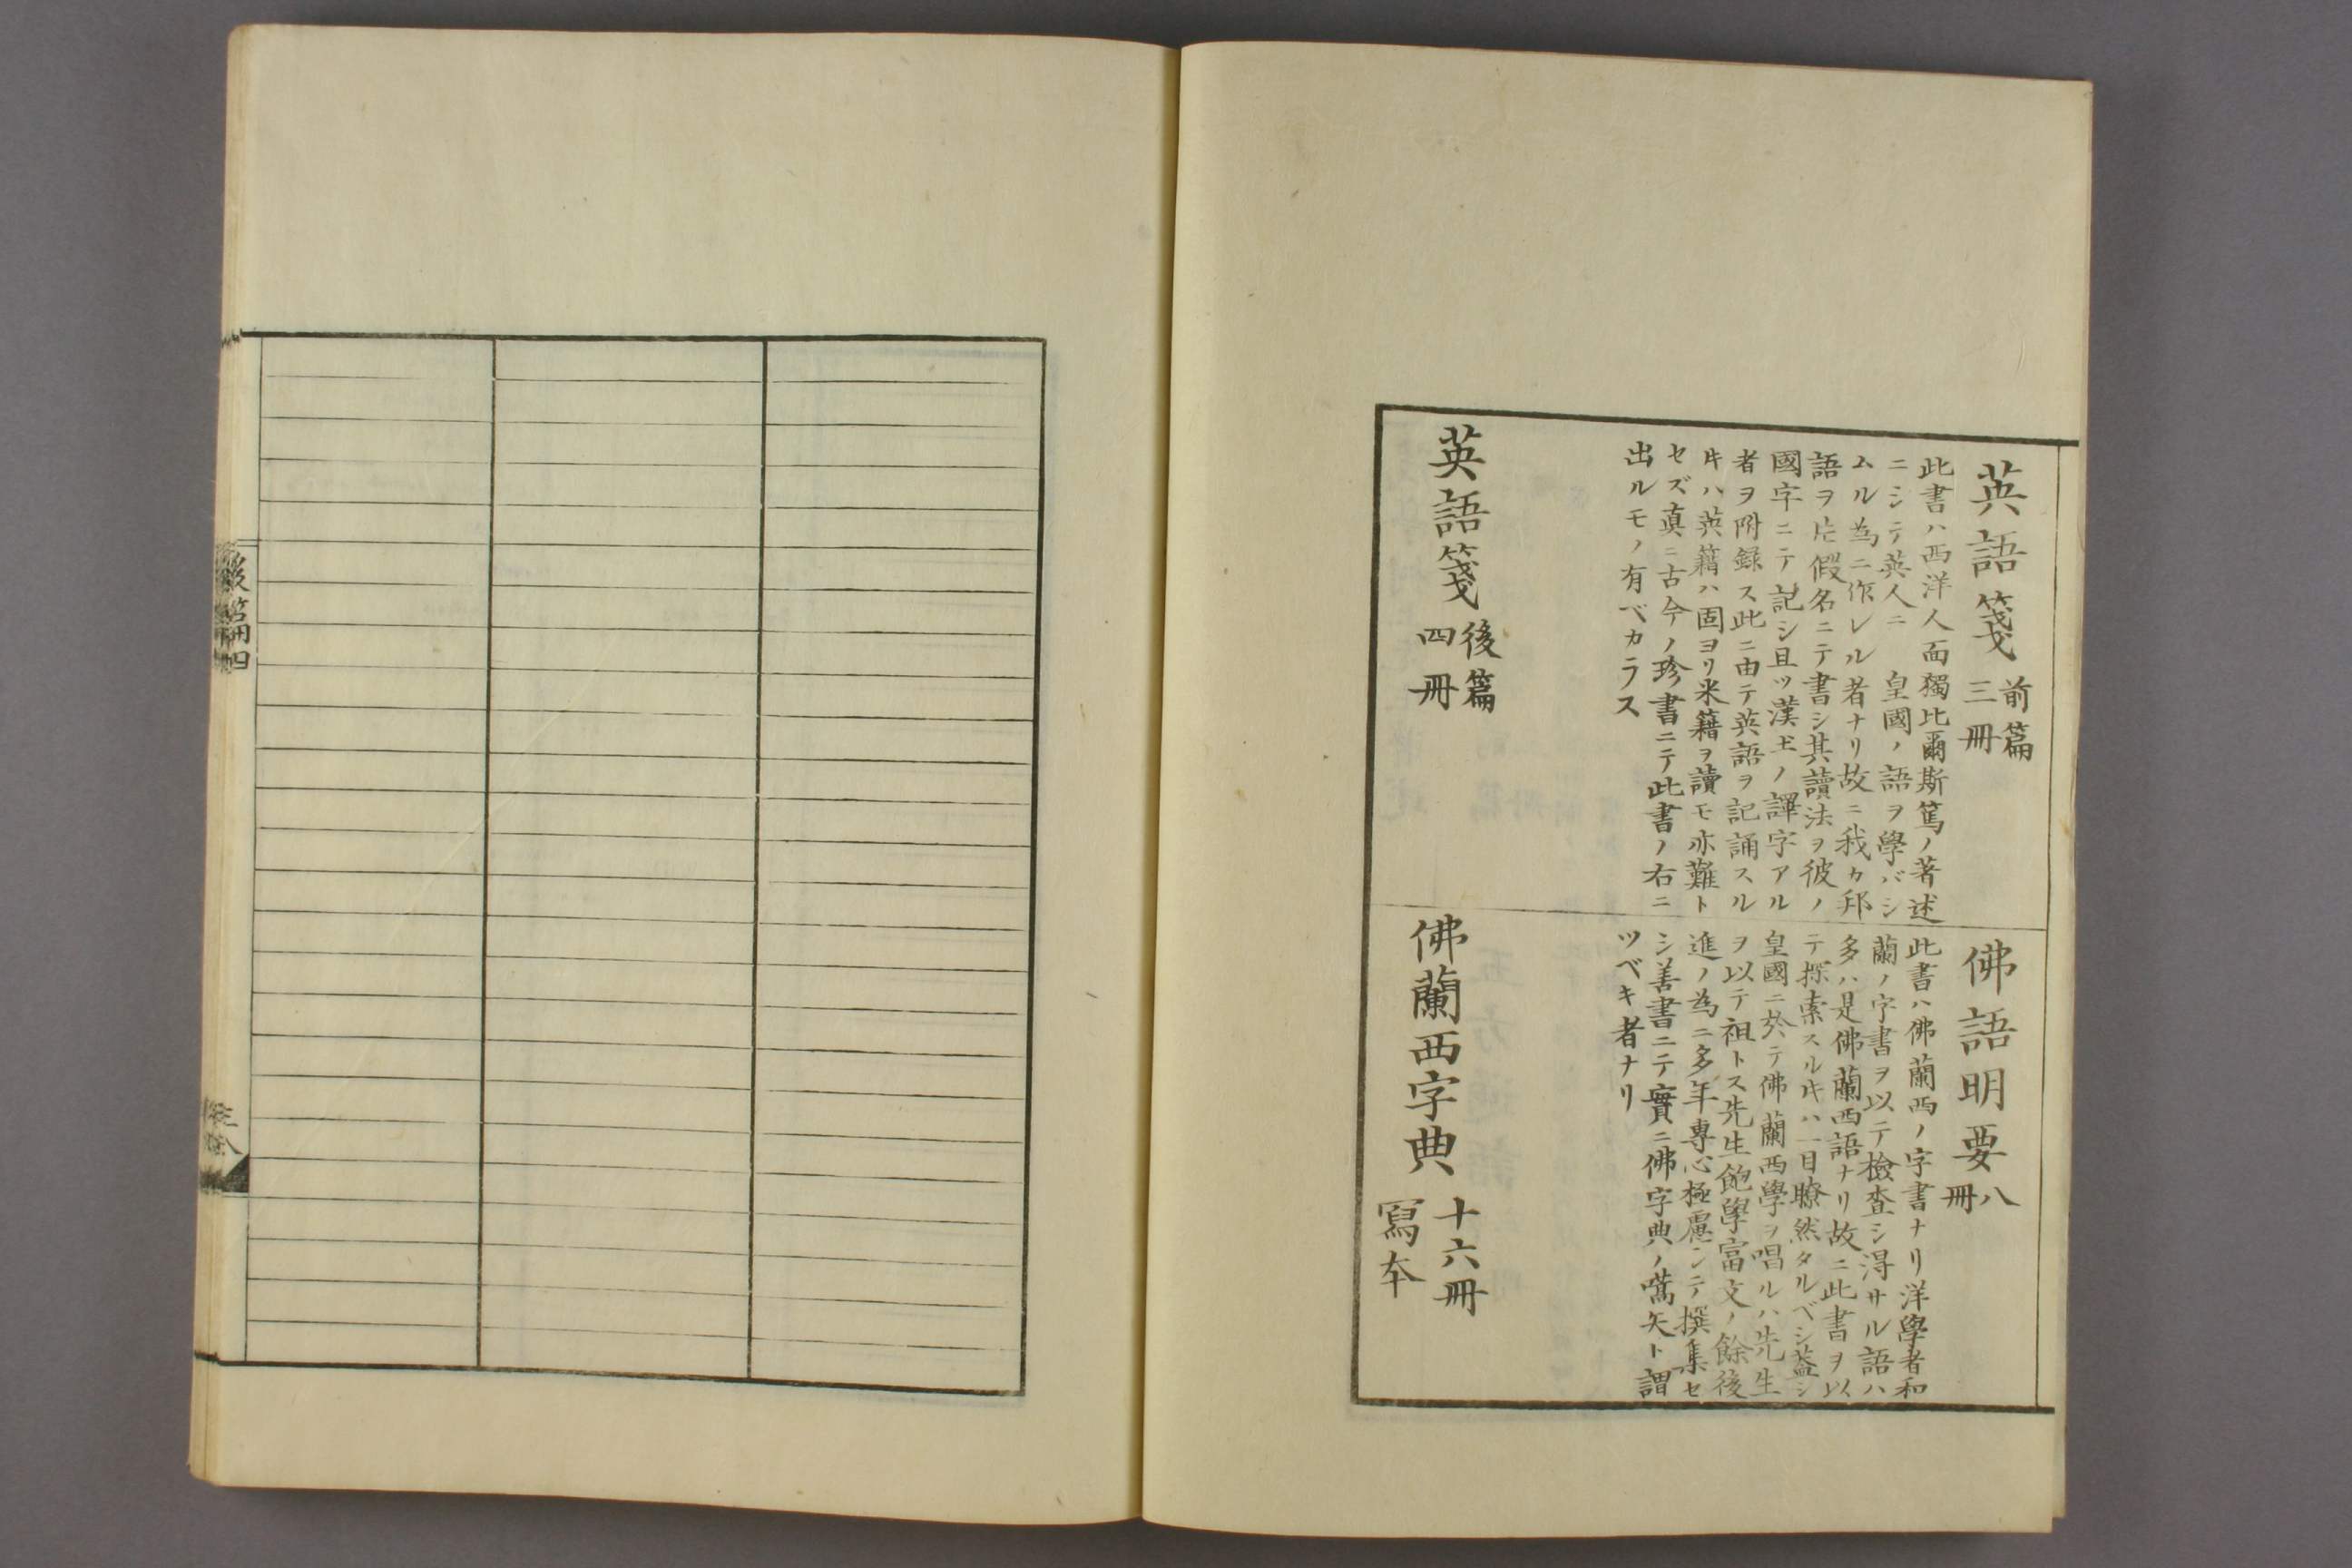 英語箋 前篇三冊
此書ハ西洋人面獨比爾斯篤ノ著述
ニシテ英人ニ 皇國ノ語ヲ學バシ
ムル為ニ作レル者ナリ故ニ我カ邦
語ヲ片假名ニテ書シ其讀法ヲ彼ノ
國字ニテ記シ且ツ漢土ノ譯字アル
者ヲ附録ス此ニ由テ英語ヲ記誦スル
ヿキハ英籍ハ固ヨリ米籍ヲ讀モ亦難ト
セズ真ニ古今ノ珍書ニテ此書ノ右ニ
出ルモノ有ベカラス
英語箋 後篇四冊
佛語明要 八冊
此書ハ佛蘭西ノ字書ナリ洋學者和
蘭ノ字書ヲ以テ檢查シ淂サル語ハ
多ハ是佛蘭西語ナリ故ニ此書ヲ以
テ探索スル𪜈ハ一目瞭然タルベシ蓋シ
皇國ニ於テ佛蘭西學ヲ唱ルハ先生
ヲ以テ祖トス先生飽學富文ノ餘後
進ノ為ニ多年專心極慮シテ撰集セ
シ善書ニテ實ニ佛字典ノ嚆矢ト謂
ツベキ者ナリ
佛蘭西字典 十六冊寫本
後篇四